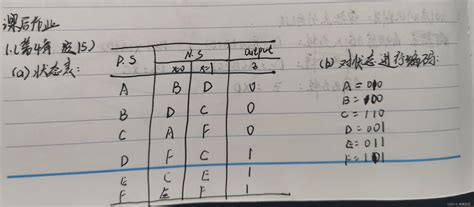 课后作业
1.(第4章 题15)
(a)状态表:
P.S N.S output
x=0 x=1 z
A B D 0
B D C 0
C A F 0
D F C 1
E C E 1
F E F 1
(b) 对状态进行编码:
A=010
B=100
C=110
D=001
E=011
F=101